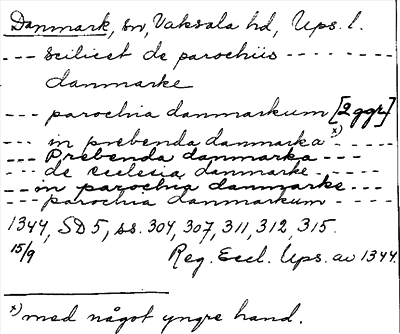 Danmark, sn, Vaksala hd, Ups. l.
--- scilicet de parochiis ------
danmarke
--- parochia danmarkum [2 ggr]
--- in prebenda danmarka x) ----
--- Prebenda danmarka ---
--- de ecclesia danmarke -----
--- in parochia danmarke ---
--- parochia danmarkum ----
1344, SD 5, ss. 304, 307, 311, 312, 315.
15/9 Reg. Eccl. Ups. av 1344.
x) med något yngre hand.